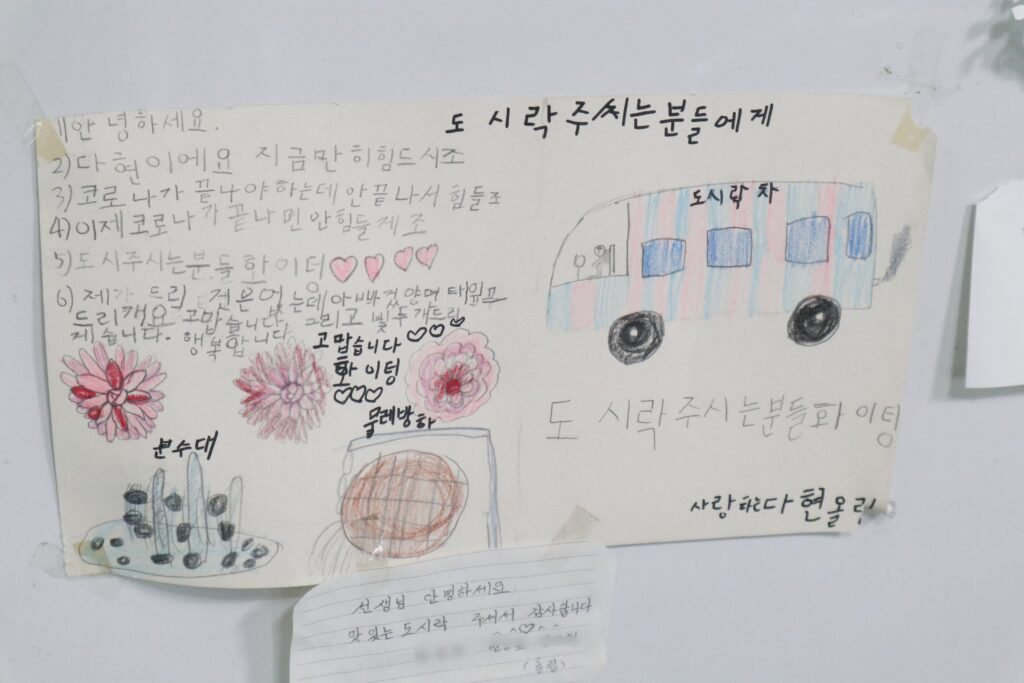 1)안녕하세요.
2)다현이에요 지금만히힘드시조
3)코로나가 끝나야 하는데 안끝나서 힘들조
4)이제코로나가 끝나면 안힘들제조
5)도시주시는분들 화이팅
6)제가 드릴 거은업는데
드리개요 고맙습니다. 그리고 빛두개드리
게습니다. 행복합니다
고맙습니다
화이팅
분수대
물레방하
도시락주씨는분들에게
도시락차
도시락주시는분들화이팅
사랑하는다현올림
선생님 안녕하세요.
맛있는 도시락 주셔서 감사합니다
(올림)